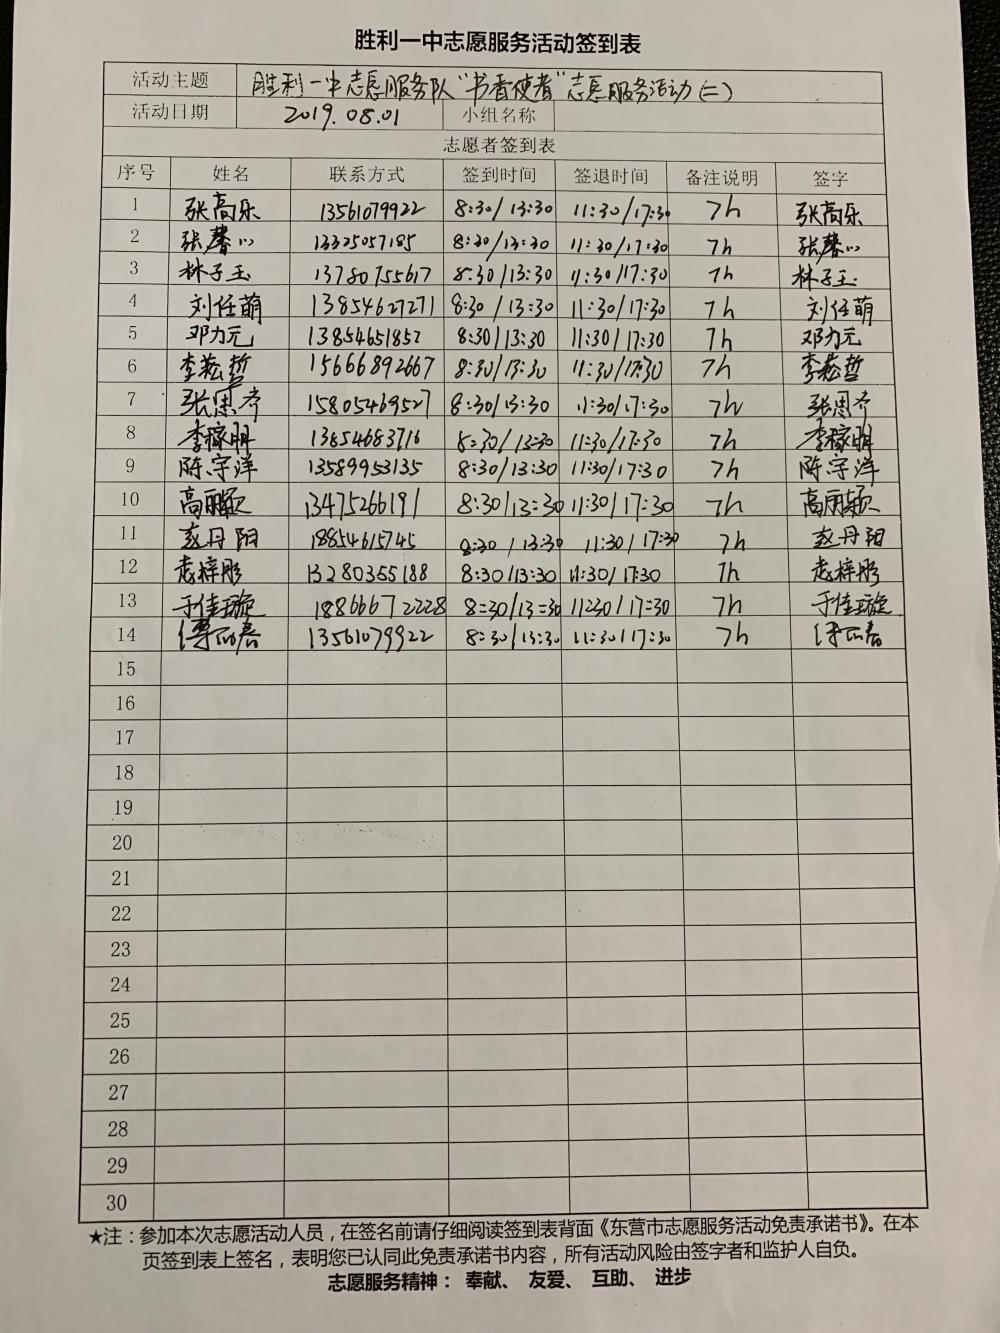 胜利一中志愿服务活动签到表
活动主题 胜利一中志愿服务队“书香使者”志愿服务活动(二)
活动日期 2019.08.01 小组名称
志愿者签到表
序号 姓名 联系方式 签到时间 签退时间 备注说明 签字
1 张高乐 13561079922 8:30/13:30 11:30/17:30 7h 张高乐
2 张馨心 13325057185 8:30/13:30 11:30/17:30 7h 张馨心
3 林子玉 13780755617 8:30/13:30 11:30/17:30 7h 林子玉
4 刘任萌 13854627271 8:30/13:30 11:30/17:30 7h 刘任萌
5 邓力元 13854651852 8:30/13:30 11:30/17:30 7h 邓力元
6 李菘哲 15666892667 8:30/13:30 11:30/17:30 7h 李菘哲
7 张思齐 15805469527 8:30/13:30 11:30/17:30 7h 张思齐
8 李稼明 13854683716 8:30/13:30 11:30/17:30 7h 李稼明
9 陈宇洋 13589953135 8:30/13:30 11:30/17:30 7h 陈宇洋
10 高丽颖 13475266191 8:30/13:30 11:30/17:30 7h 高丽颖
11 赵丹阳 18854615745 8:30/13:30 11:30/17:30 7h 赵丹阳
12 梓彤 13280355188 8:30/13:30 11:30/17:30 7h 梓彤
13 于佳璇 18866672228 8:30/13:30 11:30/17:30 7h 于佳璇
14 13561079922 8:30/13:30 11:30/17:30 7h
15
16
17
18
19
20
21
22
23
24
25
26
27
28
29
30
★注：参加本次志愿活动人员，在签名前请仔细阅读签到表背面《东营市志愿服务活动免责承诺书》。在本
页签到表上签名，表明您已认同此免责承诺书内容，所有活动风险由签字者和监护人自负。
志愿服务精神： 奉献、 友爱、 互助、 进步